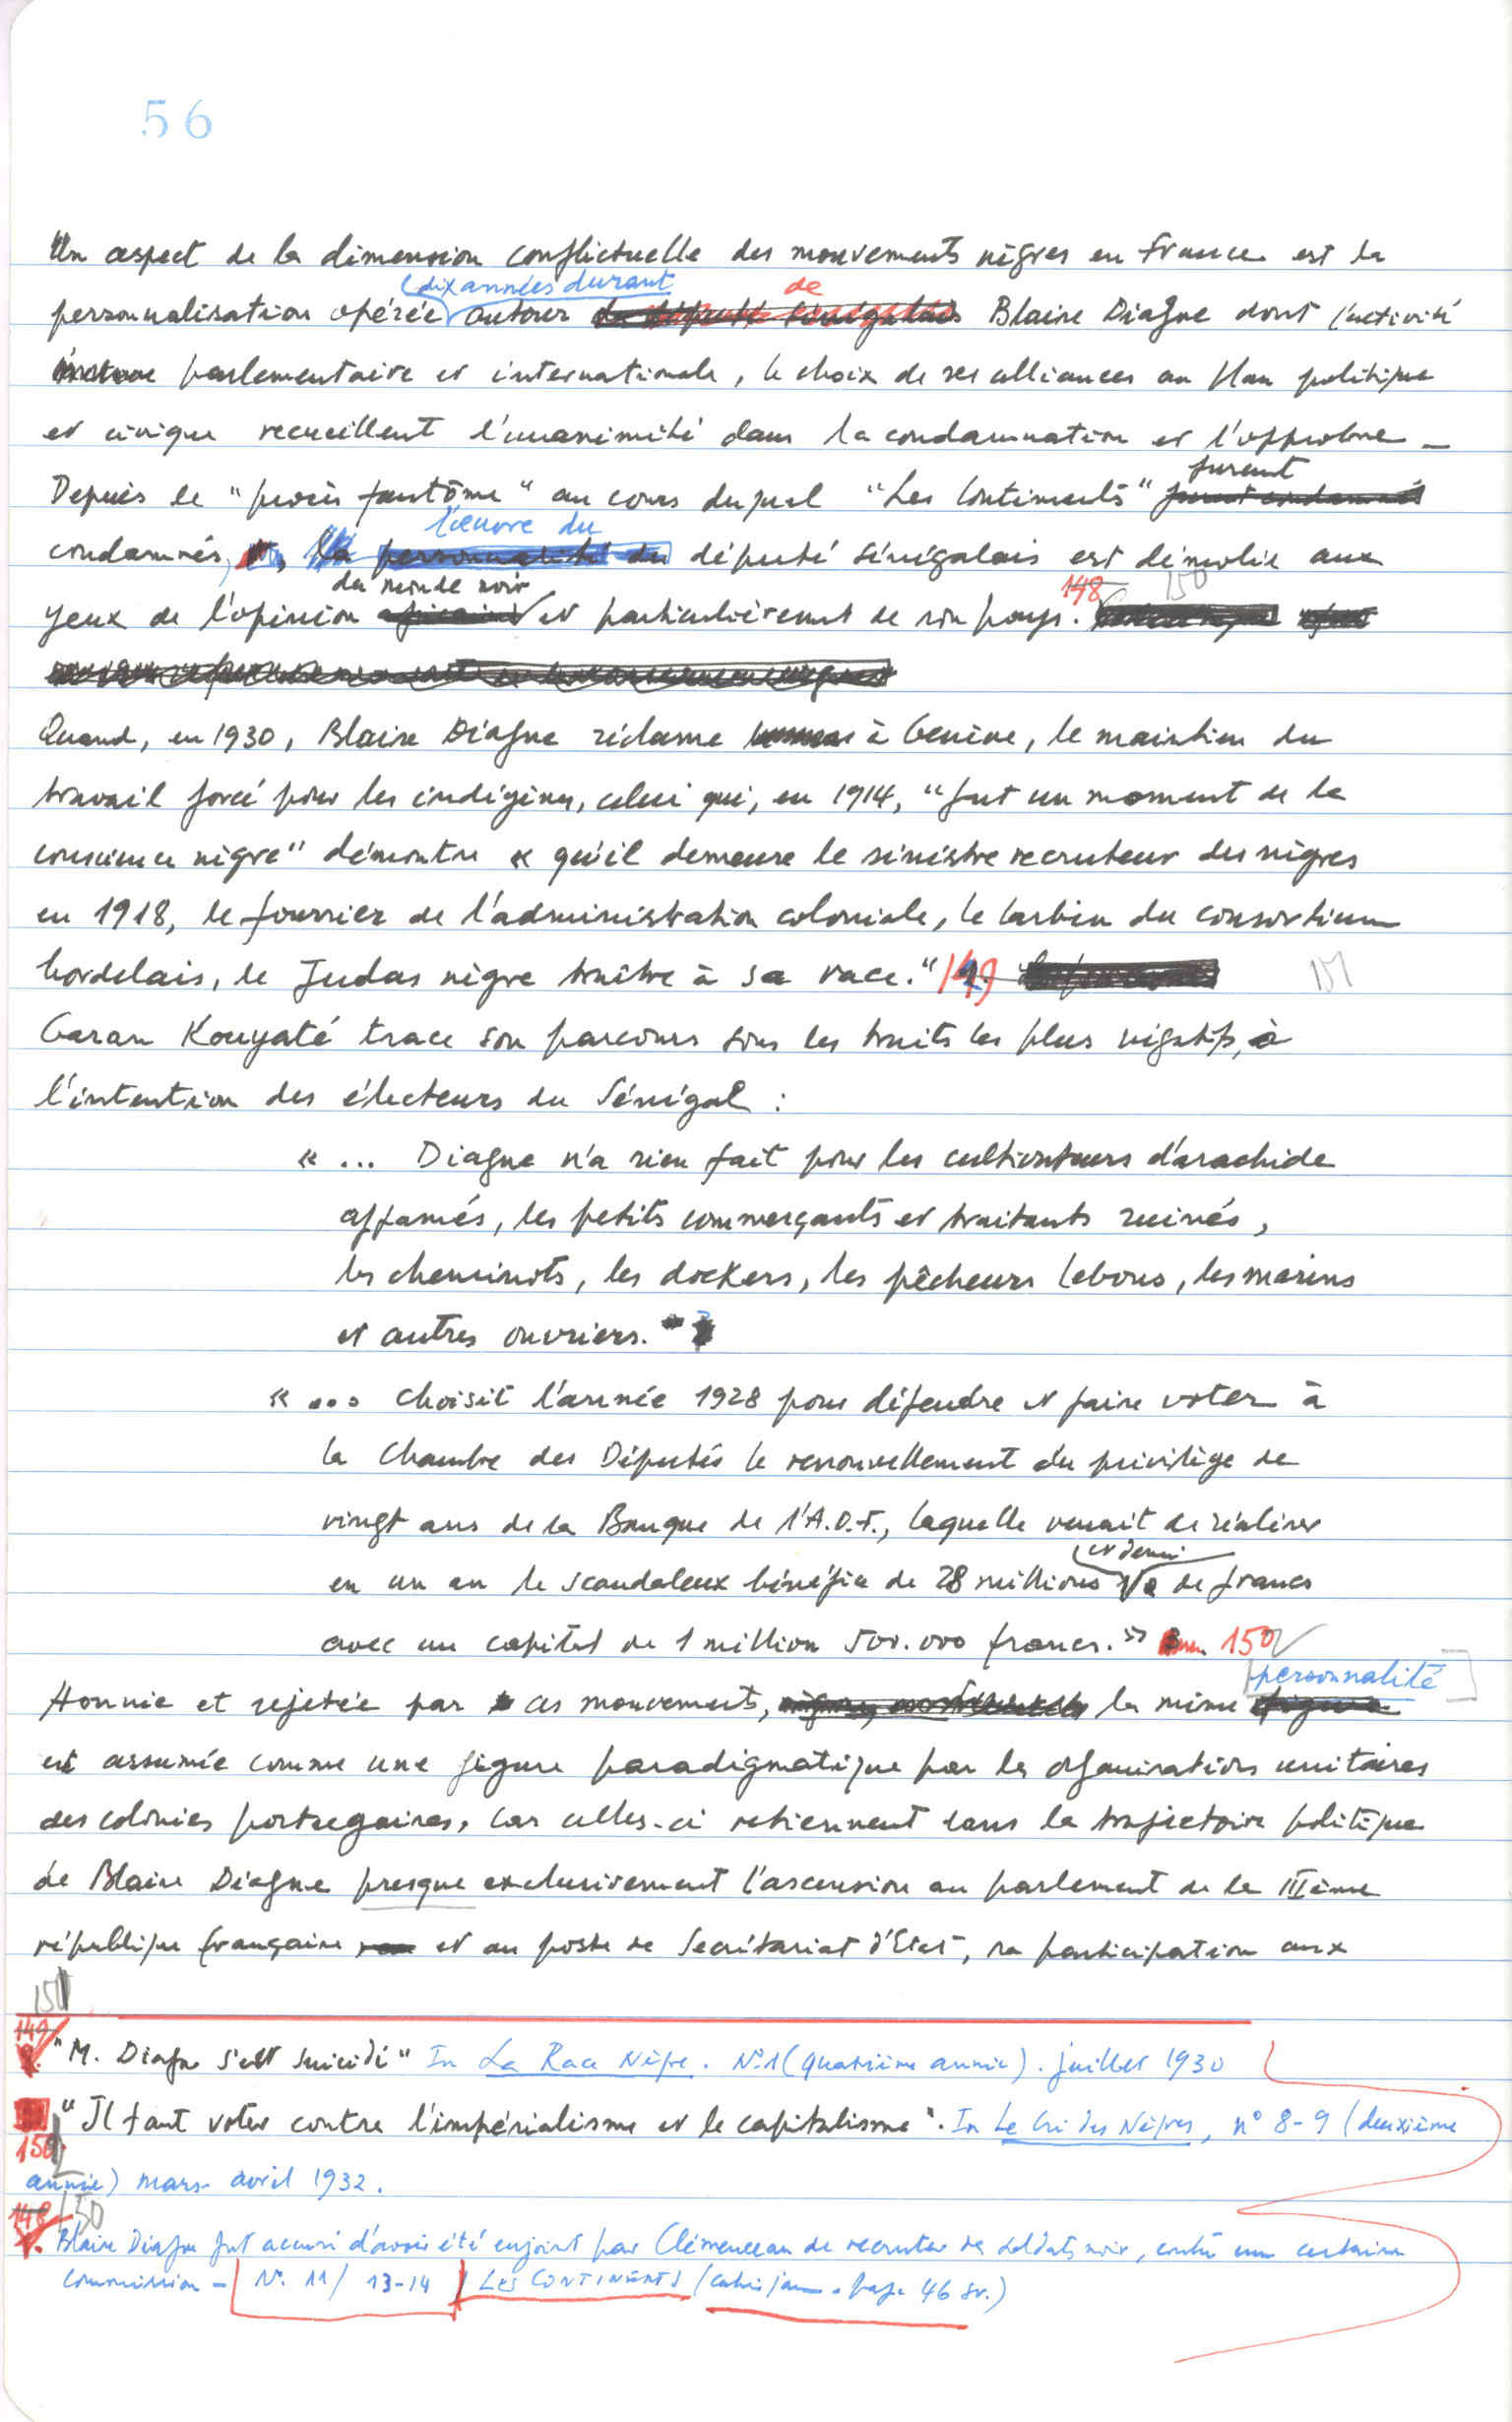 56
Un aspect de la dimension conflictuelle des mouvements nègres en France est la
(dix années durant
de
personnalisation opérée autour du député sénégalais Blaise Diagne dont l'activité
parlementaire et internationale, le choix de ses alliances au plan politique
et civique recueillent l'unanimité dans la condamnation et l'opprobre _
furent
Depuis le "procès fantôme" au cours duquel "Les Continents" furent condamnés
l'œuvre du
condamnés, la personnalité du député sénégalais est démolie aux
du monde noir
148 150
yeux de l'opinion africaine et particulièrement de son pays.
Quand, en 1930, Blaise Diagne réclame à Genève, le maintien du
travail forcé pour les indigènes, celui qui, en 1914, "fut un moment de la
conscience nègre" démontre « qu'il demeure le sinistre recruteur des nègres
en 1918, le fourrier de l'administration coloniale, le larbin du consortium
bordelais, le Judas nègre traître à sa race." 149 151
Garan Kouyaté trace son parcours sous les traits les plus négatifs, à
l'intention des électeurs du Sénégal :
« ... Diagne n'a rien fait pour les cultivateurs d'arachide
affamés, les petits commerçants et traitants ruinés,
les cheminots, les dockers, les pêcheurs lebous, les marins
et autres ouvriers."
« ... choisit l'année 1928 pour défendre et faire voter à
la Chambre des Députés le renouvellement du privilège de
vingt ans de la Banque de l'A.O.F., laquelle venait de réaliser
et demi
en un an le scandaleux bénéfice de 28 millions de francs
avec un capital de 1 million 500.000 francs. » 150
personnalité
Honnie et rejetée par ces mouvements, la même figure
est assumée comme une figure paradigmatique par les organisations unitaires
des colonies portugaises, car celles-ci retiennent dans la trajectoire politique
de Blaise Diagne presque exclusivement l'ascension au parlement de la IIIème
république française et au poste de Secrétariat d'Etat, sa participation aux
151
149
"M. Diagne s'est suicidé" In La Race Nègre. N°1 (quatrième année). juillet 1930
"Il faut voter contre l'impérialisme et le capitalisme". In Le Cri des Nègres, n° 8-9 (deuxième
150
année) mars-avril 1932.
148 150
Blaise Diagne fut accusé d'avoir été enjoint par Clémenceau de recruter des soldats noirs, contre une certaine
commission - N°. 11 / 13-14 / LES CONTINENTS (cahier jaune. page 46 sv.)